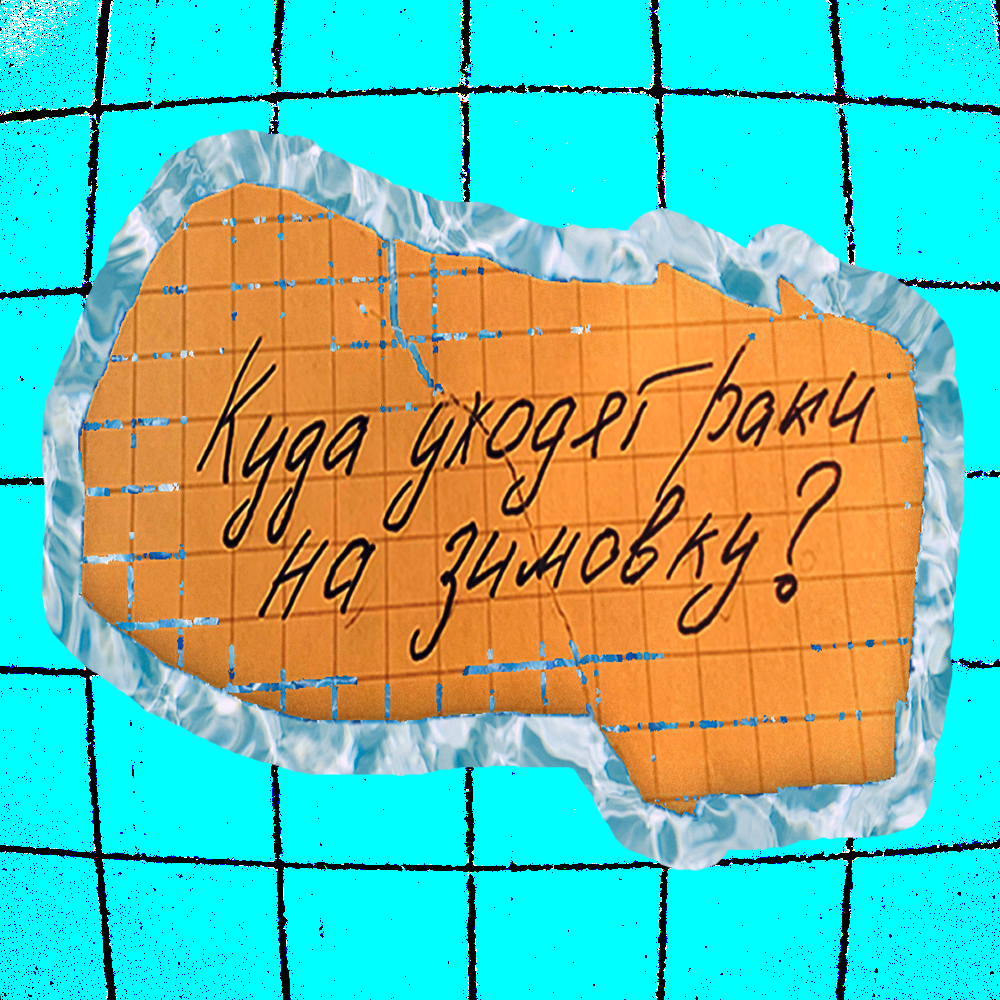 Куда уходят раки
на зимовку?